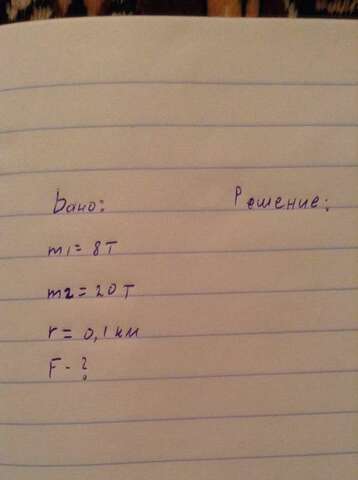 Дано: Решение:
m1 = 8 т
m2 = 20 т
r = 0,1 км
F - ?